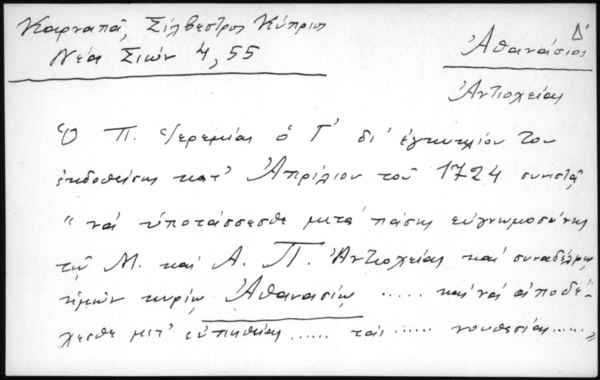 Καρναπᾶ, Σίλβεστρος Κύπριος
Νέα Σιών 4, 55
Ἀθανάσιος Δ'
Ἀντιοχείας
Ὁ Π. Ἱερεμίας ὁ Γ' δι' ἐγκυκλίου του
ἐκδοθείσης κατ' Ἀπρίλιον τοῦ 1724 συνιστᾷ
" νά ὑποτάσσεσθε μετά πάσης εὐγνωμοσύνης
τῷ Μ. καί Α. Π. Ἀντιοχείας καί συναδέλφῳ
ἡμῶν κυρίῳ Ἀθανασίῳ ..... καί νά ἀποδέ-
χεσθε μετ' εὐπειθείας ...... τάς ...... νουθεσίας ....."